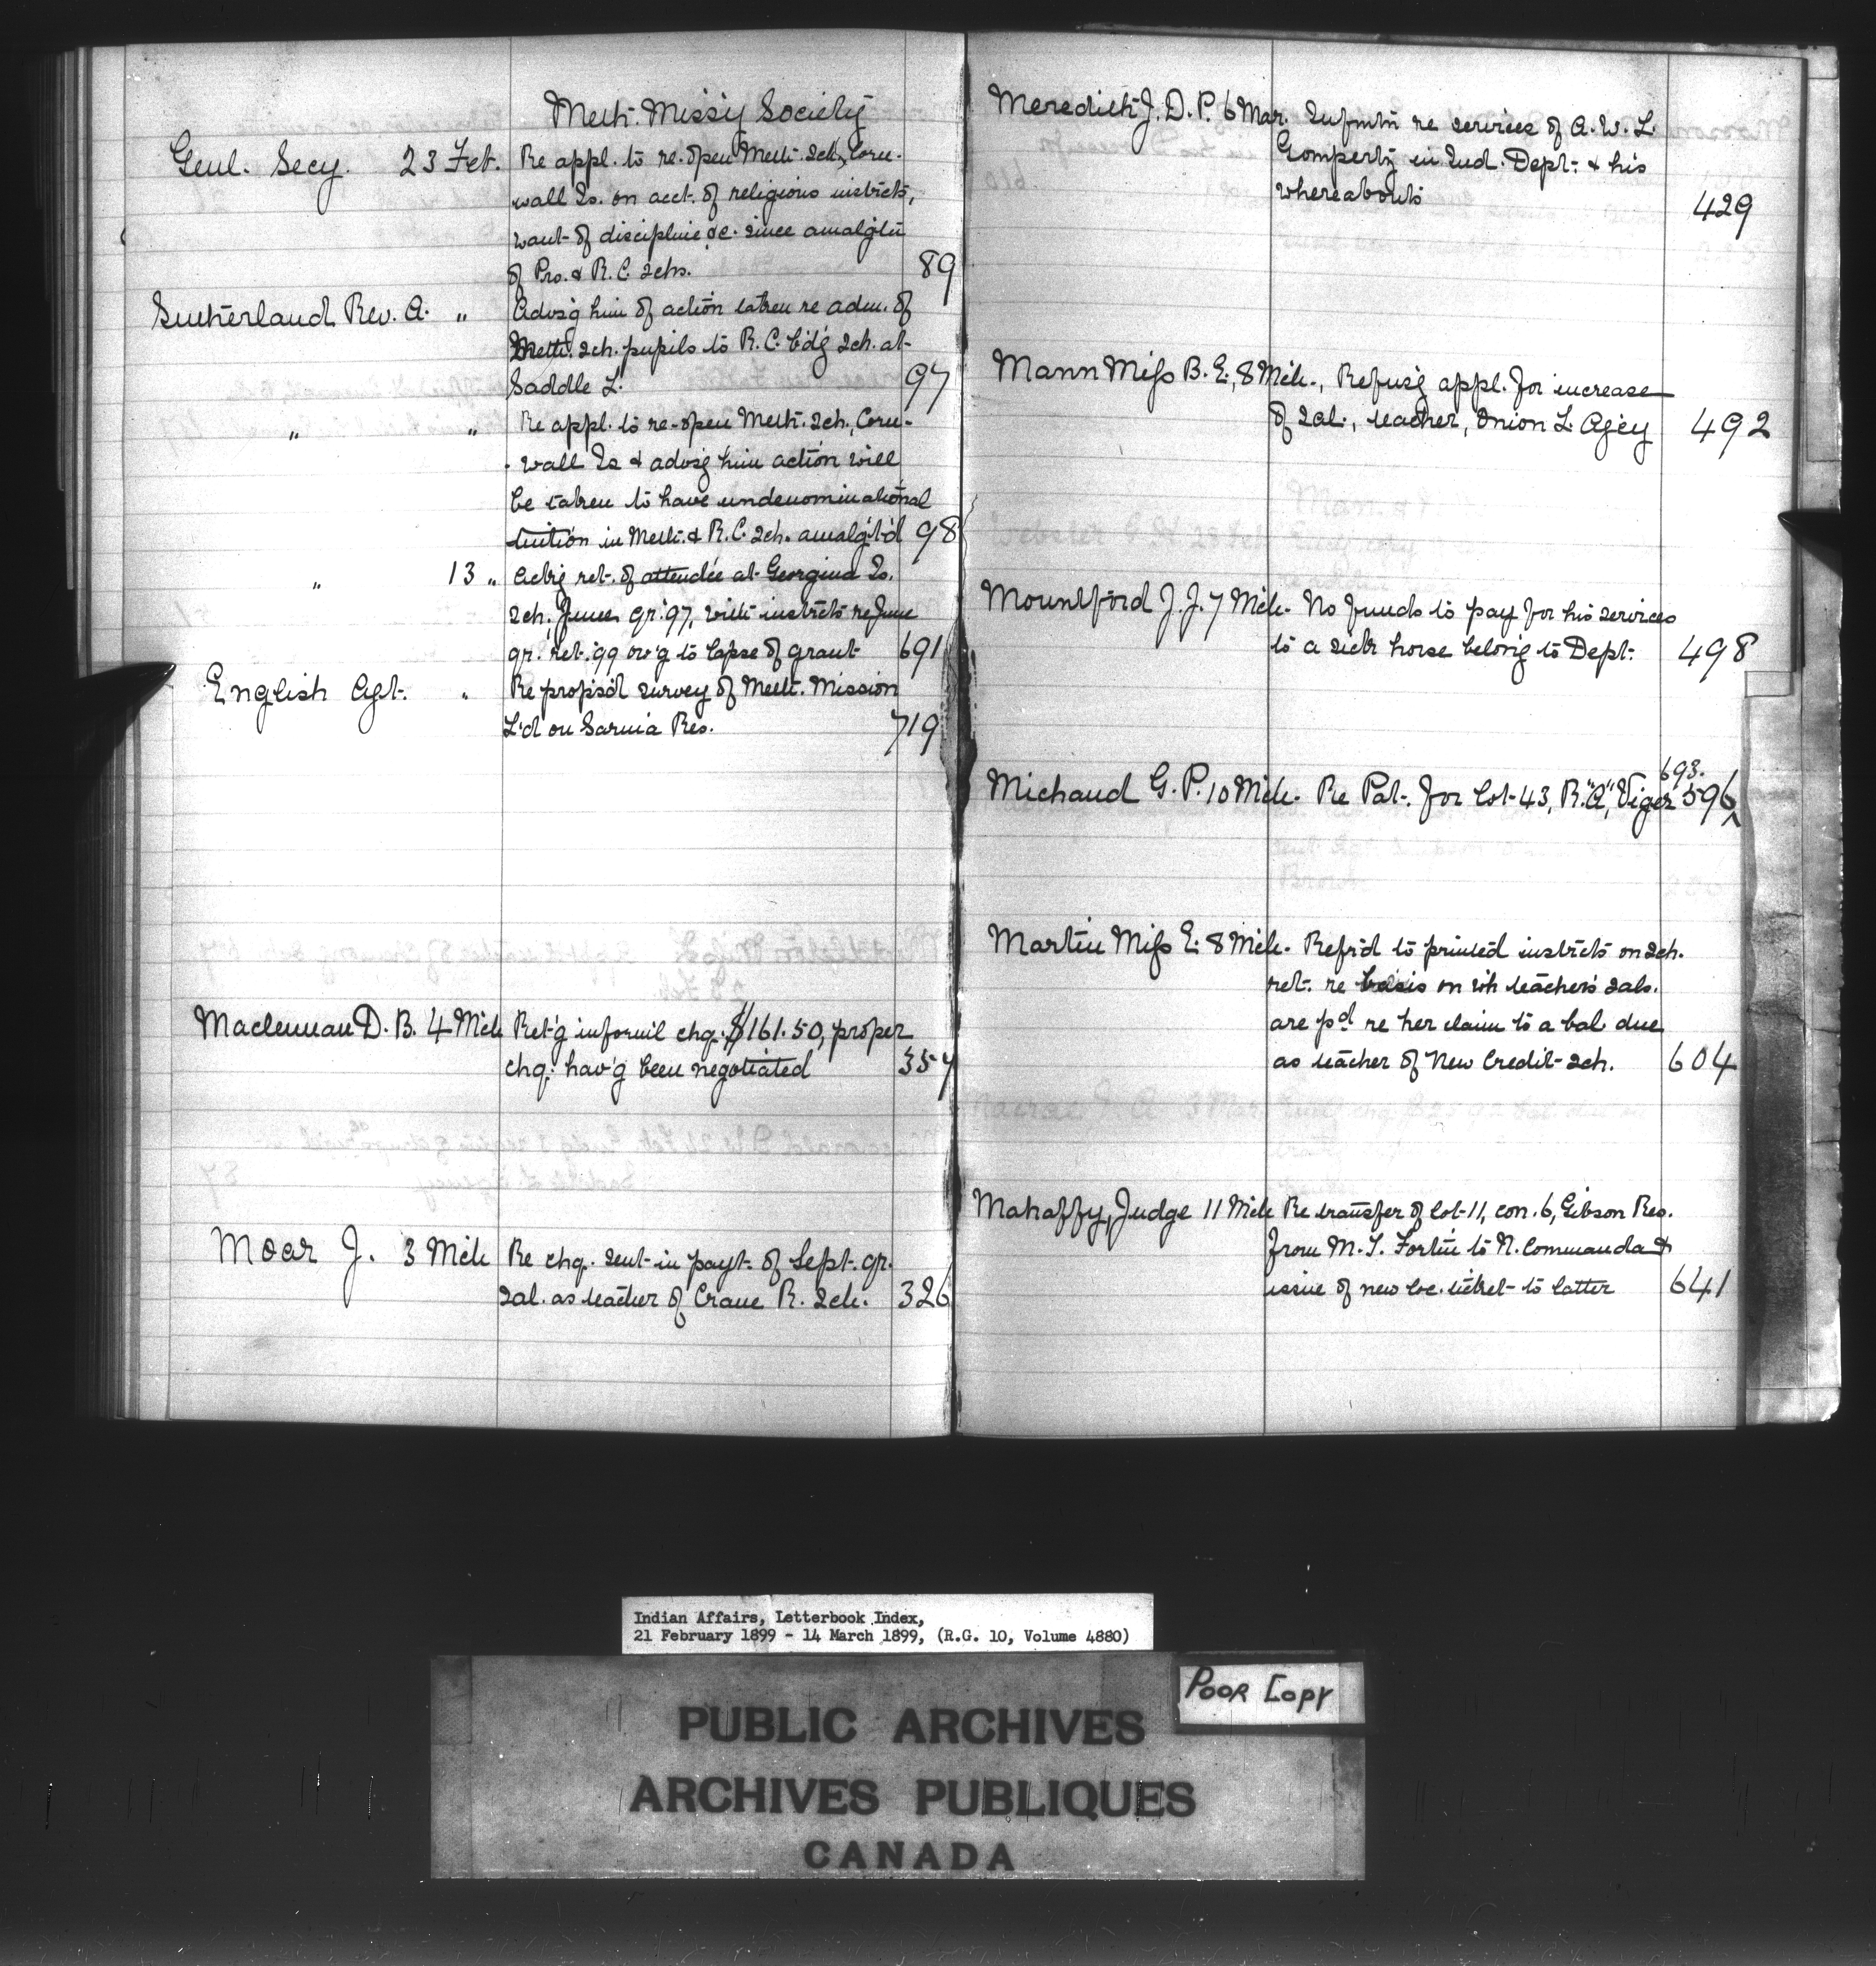 Meth. Missy Society
Genl. Secy. 23 Feb. Re appl. to re-open Meth. Sch., Corn-
wall Is. on acct. of religious instrcts,
want of discipline &c. since amalg'tn
of Pro. & R.C. schs. 89
Sutherland Rev. A. " Advis'g him of action taken re adm. of
Meth. sch. pupils to R.C. b'd'g sch. at
Saddle L. 97
" " Re appl. to re-open Meth. sch., Corn-
-wall Is & advis'g him action will
be taken to have undenominational
tuition in Meth. & R.C. sch. amalg't'd 98
" 13 " Ackg ret. of attendce at Georgina Is.
sch. June qr. '97, with instrcts re June
qr. ret. '99 ow'g to lapse of grant 691
English Agt. " Re propos'd survey of Meth. Mission
L'd on Sarnia Res. 719
Maclennan D. B. 4 Mch Ret'g informl chq. $161.50, proper
chq. hav'g been negotiated 357
Moar J. 3 Mch Re chq. sent in payt. of Sept. qr.
sal. as teacher of Crane R. Sch. 326
Meredith J. D. P. 6 Mar. Infmtn re services of A. W. L.
Gompertz in Ind. Dept. & his
whereabouts 429
Mann Miss B. E., 8 Mch., Refus'g appl. for increase
of sal., teacher, Onion L. Agcy 492
Mountford J. J. 7 Mch. No funds to pay for his services
to a sick horse belong to Dept. 498
693.
Michaud G. P. 10 Mch. Re Pat. for lot 43, R. "A", Viger 596
Martin Miss E. 8 Mch. Refr'd to printed instrcts on sch.
ret. re basis on wh teacher's sals.
are pd re her claim to a bal due
as teacher of New Credit sch. 604
Mahaffy, Judge 11 Mch Re transfer of lot 11, con. 6, Gibson Res.
from M. T. Fortin to N. Commanda &
issue of new loc. ticket to latter 641
Indian Affairs, Letterbook Index,
21 February 1899 - 14 March 1899, (R.G. 10, Volume 4880)
Poor Copy
PUBLIC ARCHIVES
ARCHIVES PUBLIQUES
CANADA